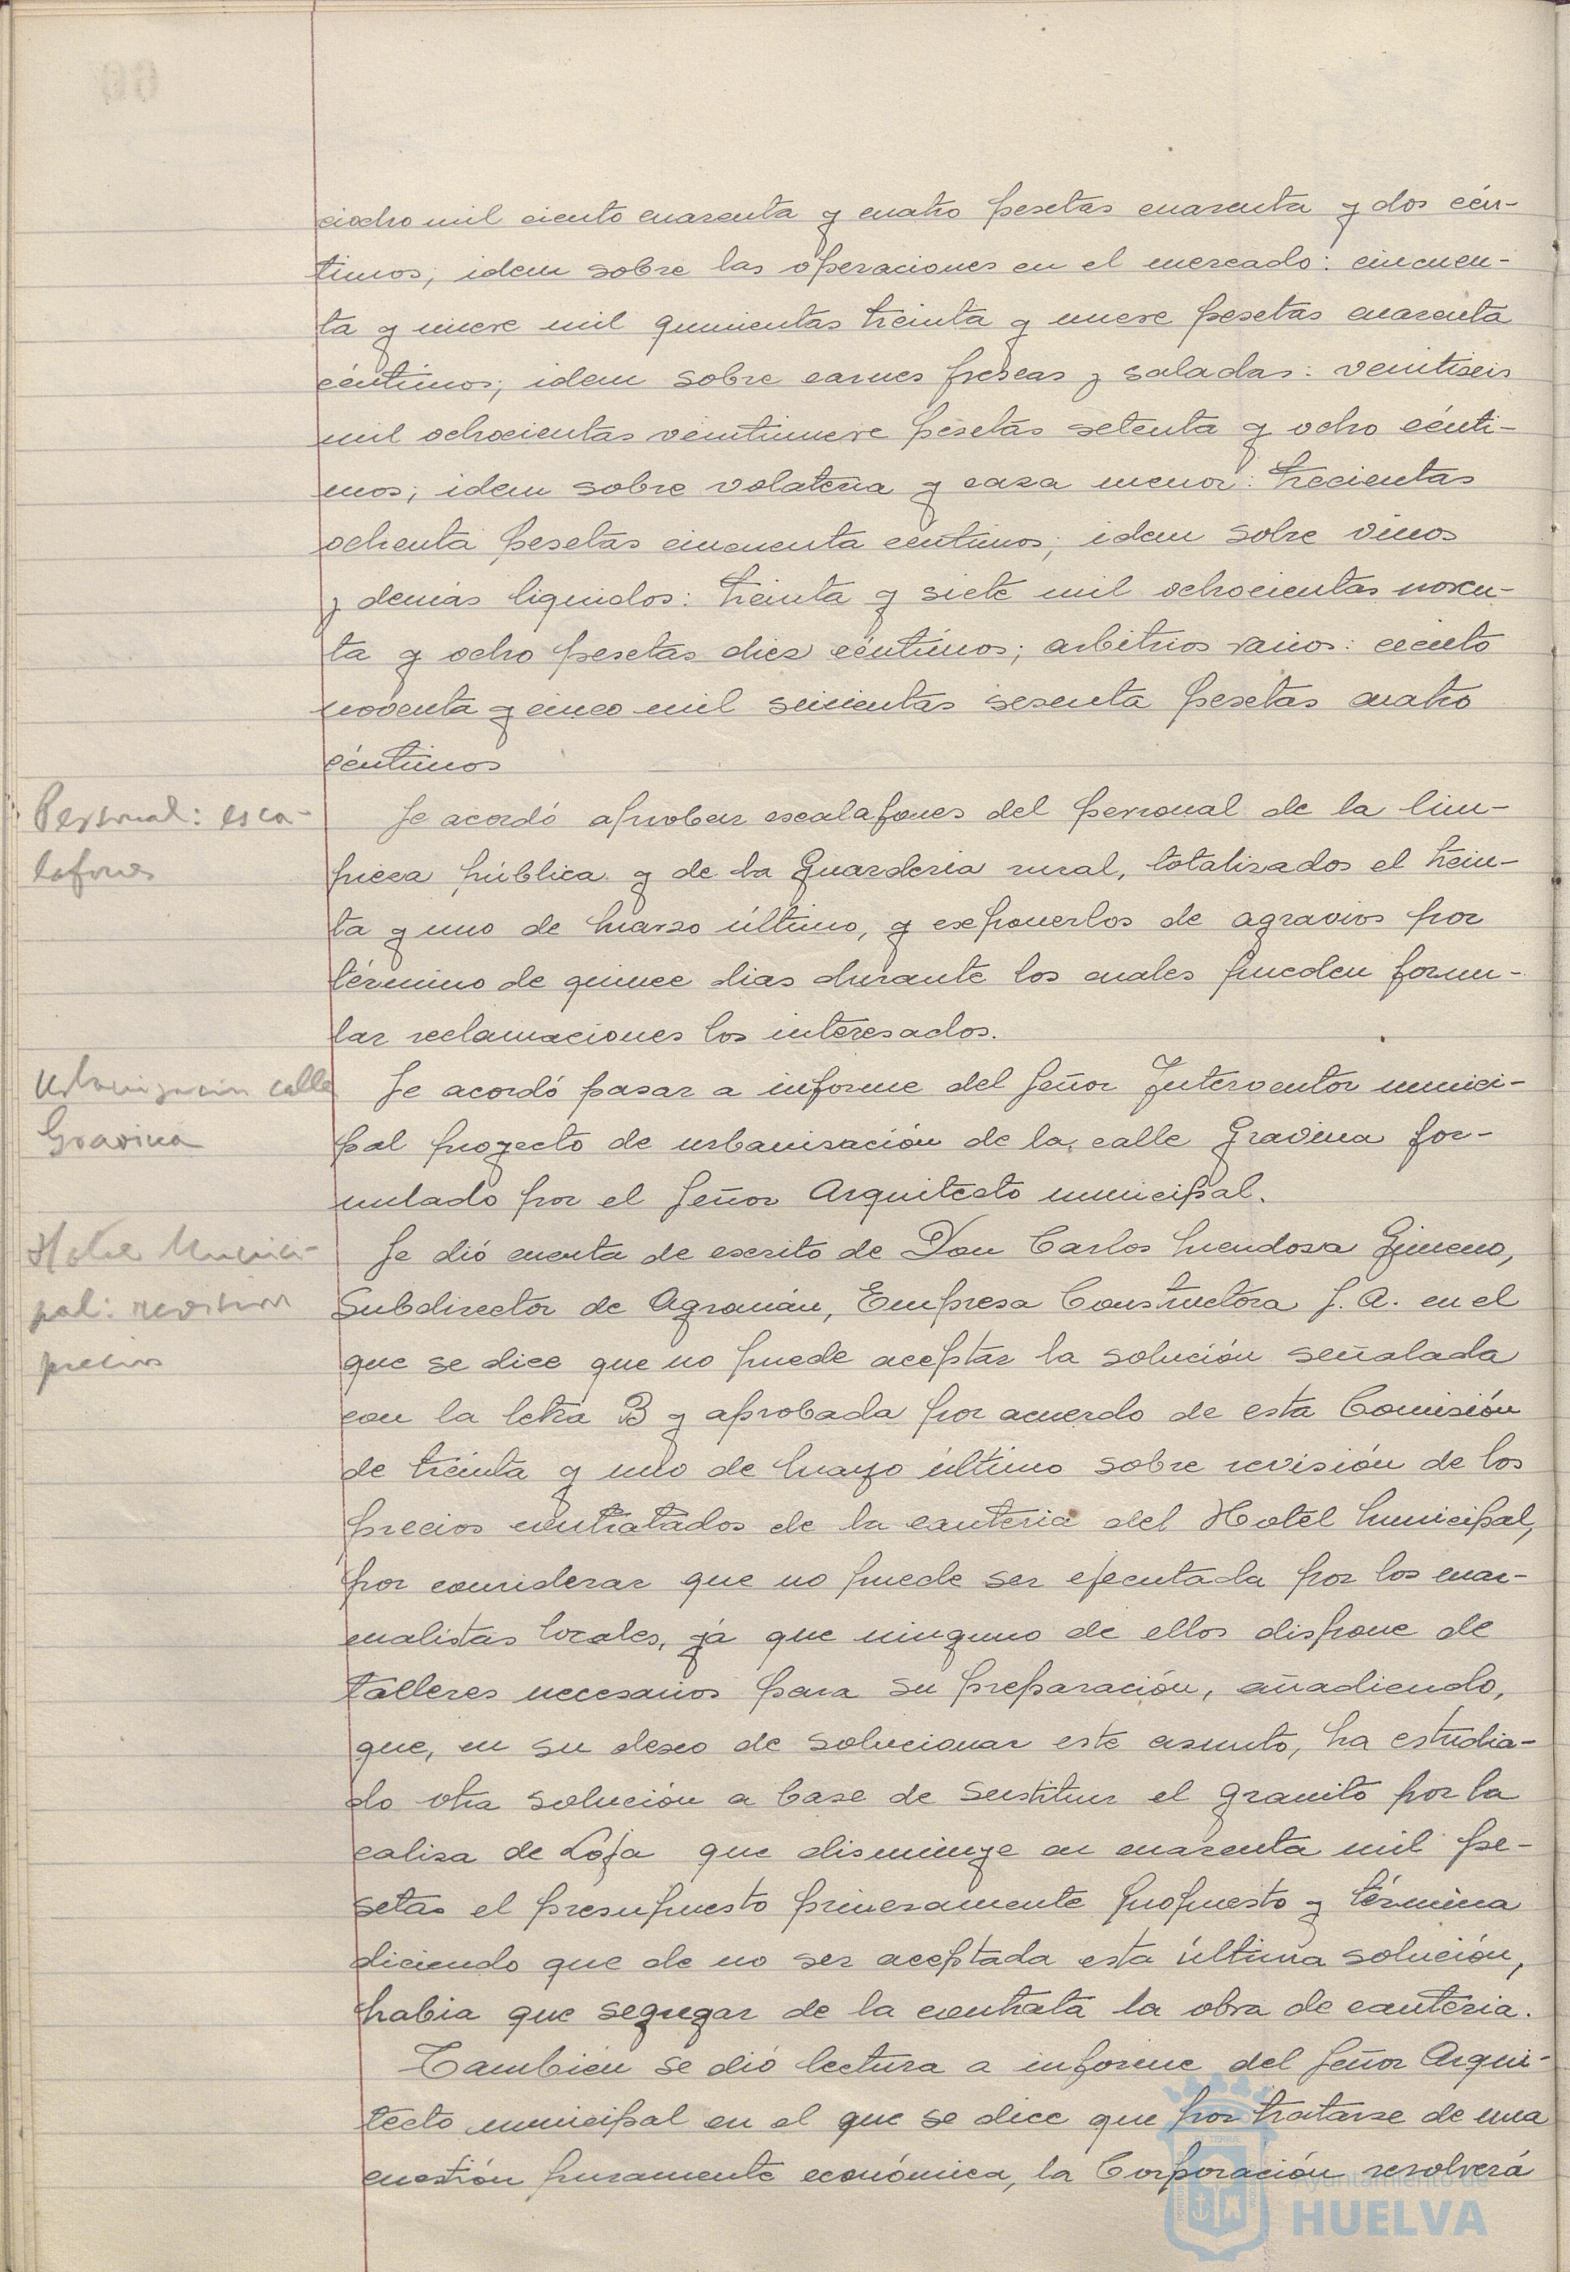 ciocho mil ciento cuarenta y cuatro pesetas cuarenta y dos cén-
timos; idem sobre las operaciones en el mercado: cincuen-
ta y nueve mil quinientas treinta y nueve pesetas cuarenta
céntimos; idem sobre carnes frescas y saladas: veintiseis
mil ochocientas veintinueve pesetas setenta y ocho cénti-
mos; idem sobre volateria y caza menor: trecientas
ochenta pesetas cincuenta centimos; idem sobre vinos
y demás liquidos: treinta y siete mil ochocientas noven-
ta y ocho pesetas diez céntimos; arbitrios varios: ciento
noventa y cinco mil seiscientas sesenta pesetas cuatro
céntimos
Personal: esca-
lafones
Se acordó aprobar escalafones del personal de la lim-
pieza pública y de la Guarderia rural, totalizados el trein-
ta y uno de Marzo último, y exponerlos de agravios por
término de quince dias durante los cuales pueden formu-
lar reclamaciones los interesados.
Urbanización calle
Gravina
Se acordó pasar a informe del Señor Interventor munici-
pal proyecto de urbanización de la calle Gravina for-
mulado por el Señor Arquitecto municipal.
Hotel Munici-
pal: revision
precios
Se dió cuenta de escrito de Don Carlos Mendoza Gimeno,
Subdirector de Agroman, Empresa Constructora S. A. en el
que se dice que no puede aceptar la solución señalada
con la letra B y aprobada por acuerdo de esta Comisión
de treinta y uno de Mayo último sobre revisión de los
precios contratados de la canteria del Hotel Municipal,
por considerar que no puede ser ejecutada por los mar-
molistas locales, ya que ninguno de ellos dispone de
talleres necesarios para su preparación, añadiendo,
que, en su deseo de solucionar este asunto, ha estudia-
do otra solución a base de sustituir el granito por la
caliza de Loja que disminuye en cuarenta mil pe-
setas el presupuesto primeramente propuesto y termina
diciendo que de no ser aceptada esta última solución,
habia que segregar de la contrata la obra de canteria.
Tambien se dió lectura a informe del Señor Arqui-
tecto municipal en el que se dice que por tratarse de una
cuestión puramente económica, la Corporación resolverá
Ayuntamiento de
HUELVA